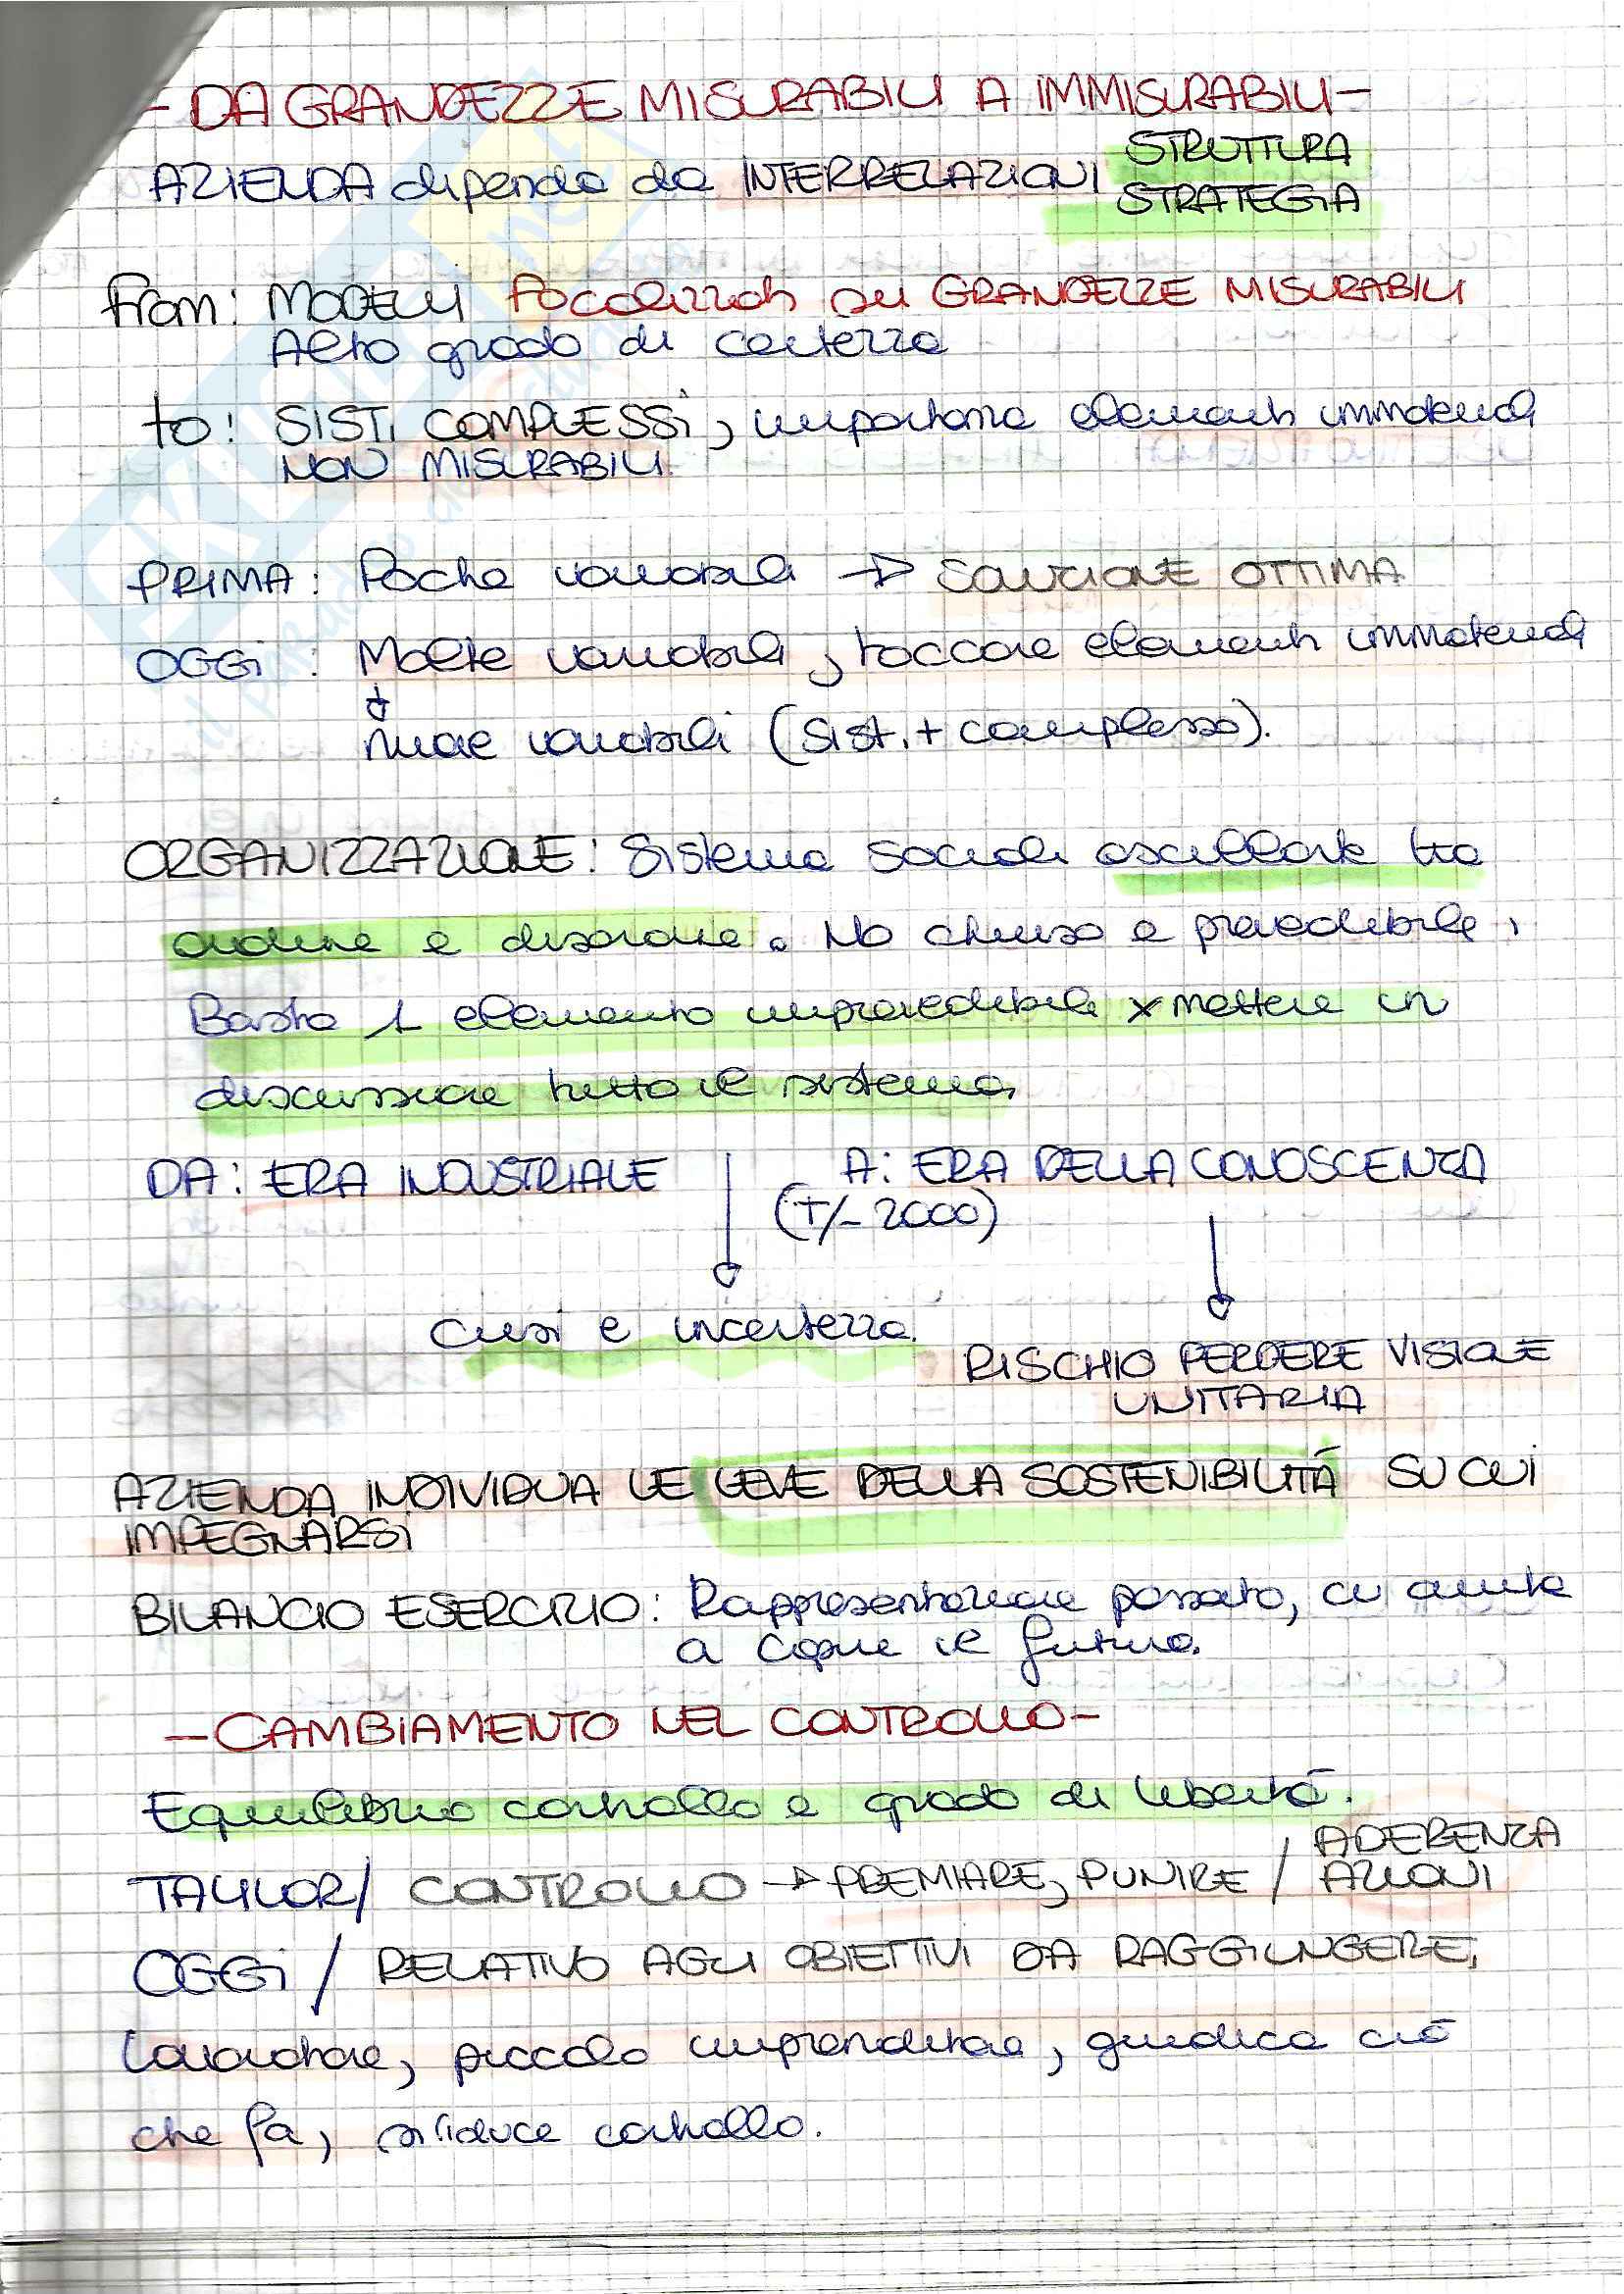 - DA GRANDEZZE MISURABILI A IMMISURABILI -
AZIENDA dipende da INTERRELAZIONI STRUTTURA
STRATEGIA
from: MODELLI focalizzati su GRANDEZZE MISURABILI
Alto grado di certezza
to: SIST. COMPLESSI, importanza elementi immateriali
NON MISURABILI.
PRIMA: Poche variabili → SOLUZIONE OTTIMA
OGGI: Molte variabili, toccare elementi immateriali
↓
nuove variabili (Sist. + complesso).
ORGANIZZAZIONE: Sistema sociale oscillante tra
ordine e disordine. No chiuso e prevedibile,
Basta 1 elemento imprevedibile x mettere in
discussione tutto il sistema.
DA: ERA INDUSTRIALE A: ERA DELLA CONOSCENZA
(+/- 2000)
Crisi e incertezza.
RISCHIO PERDERE VISIONE
UNITARIA
AZIENDA INDIVIDUA LE LEVE DELLA SOSTENIBILITÀ SU CUI
IMPEGNARSI
BILANCIO ESERCIZIO: Rappresentazione passato, ci aiuta
a capire il futuro.
- CAMBIAMENTO NEL CONTROLLO -
Equilibrio controllo e grado di libertà.
TAYLOR / CONTROLLO → PREMIARE, PUNIRE / ADERENZA
AZIONI
OGGI / RELATIVO AGLI OBIETTIVI DA RAGGIUNGERE,
lavoratore, piccolo imprenditore, giudica ciò
che fa, si riduce controllo.